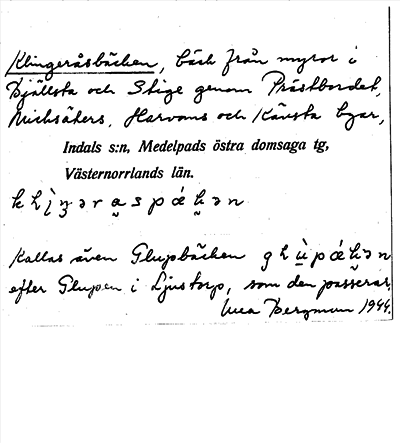 Klingeråsbäcken, bäck från myror i
Bjällsta och Stige genom Prästbordet,
Michsäkers, Harvoms och Kävsta byar,
Indals s:n, Medelpads östra domsaga tg,
Västernorrlands län.
Kallas även Glupbäcken
efter Glupen i Ljustorp, som den passerar.
Bergman 1944.